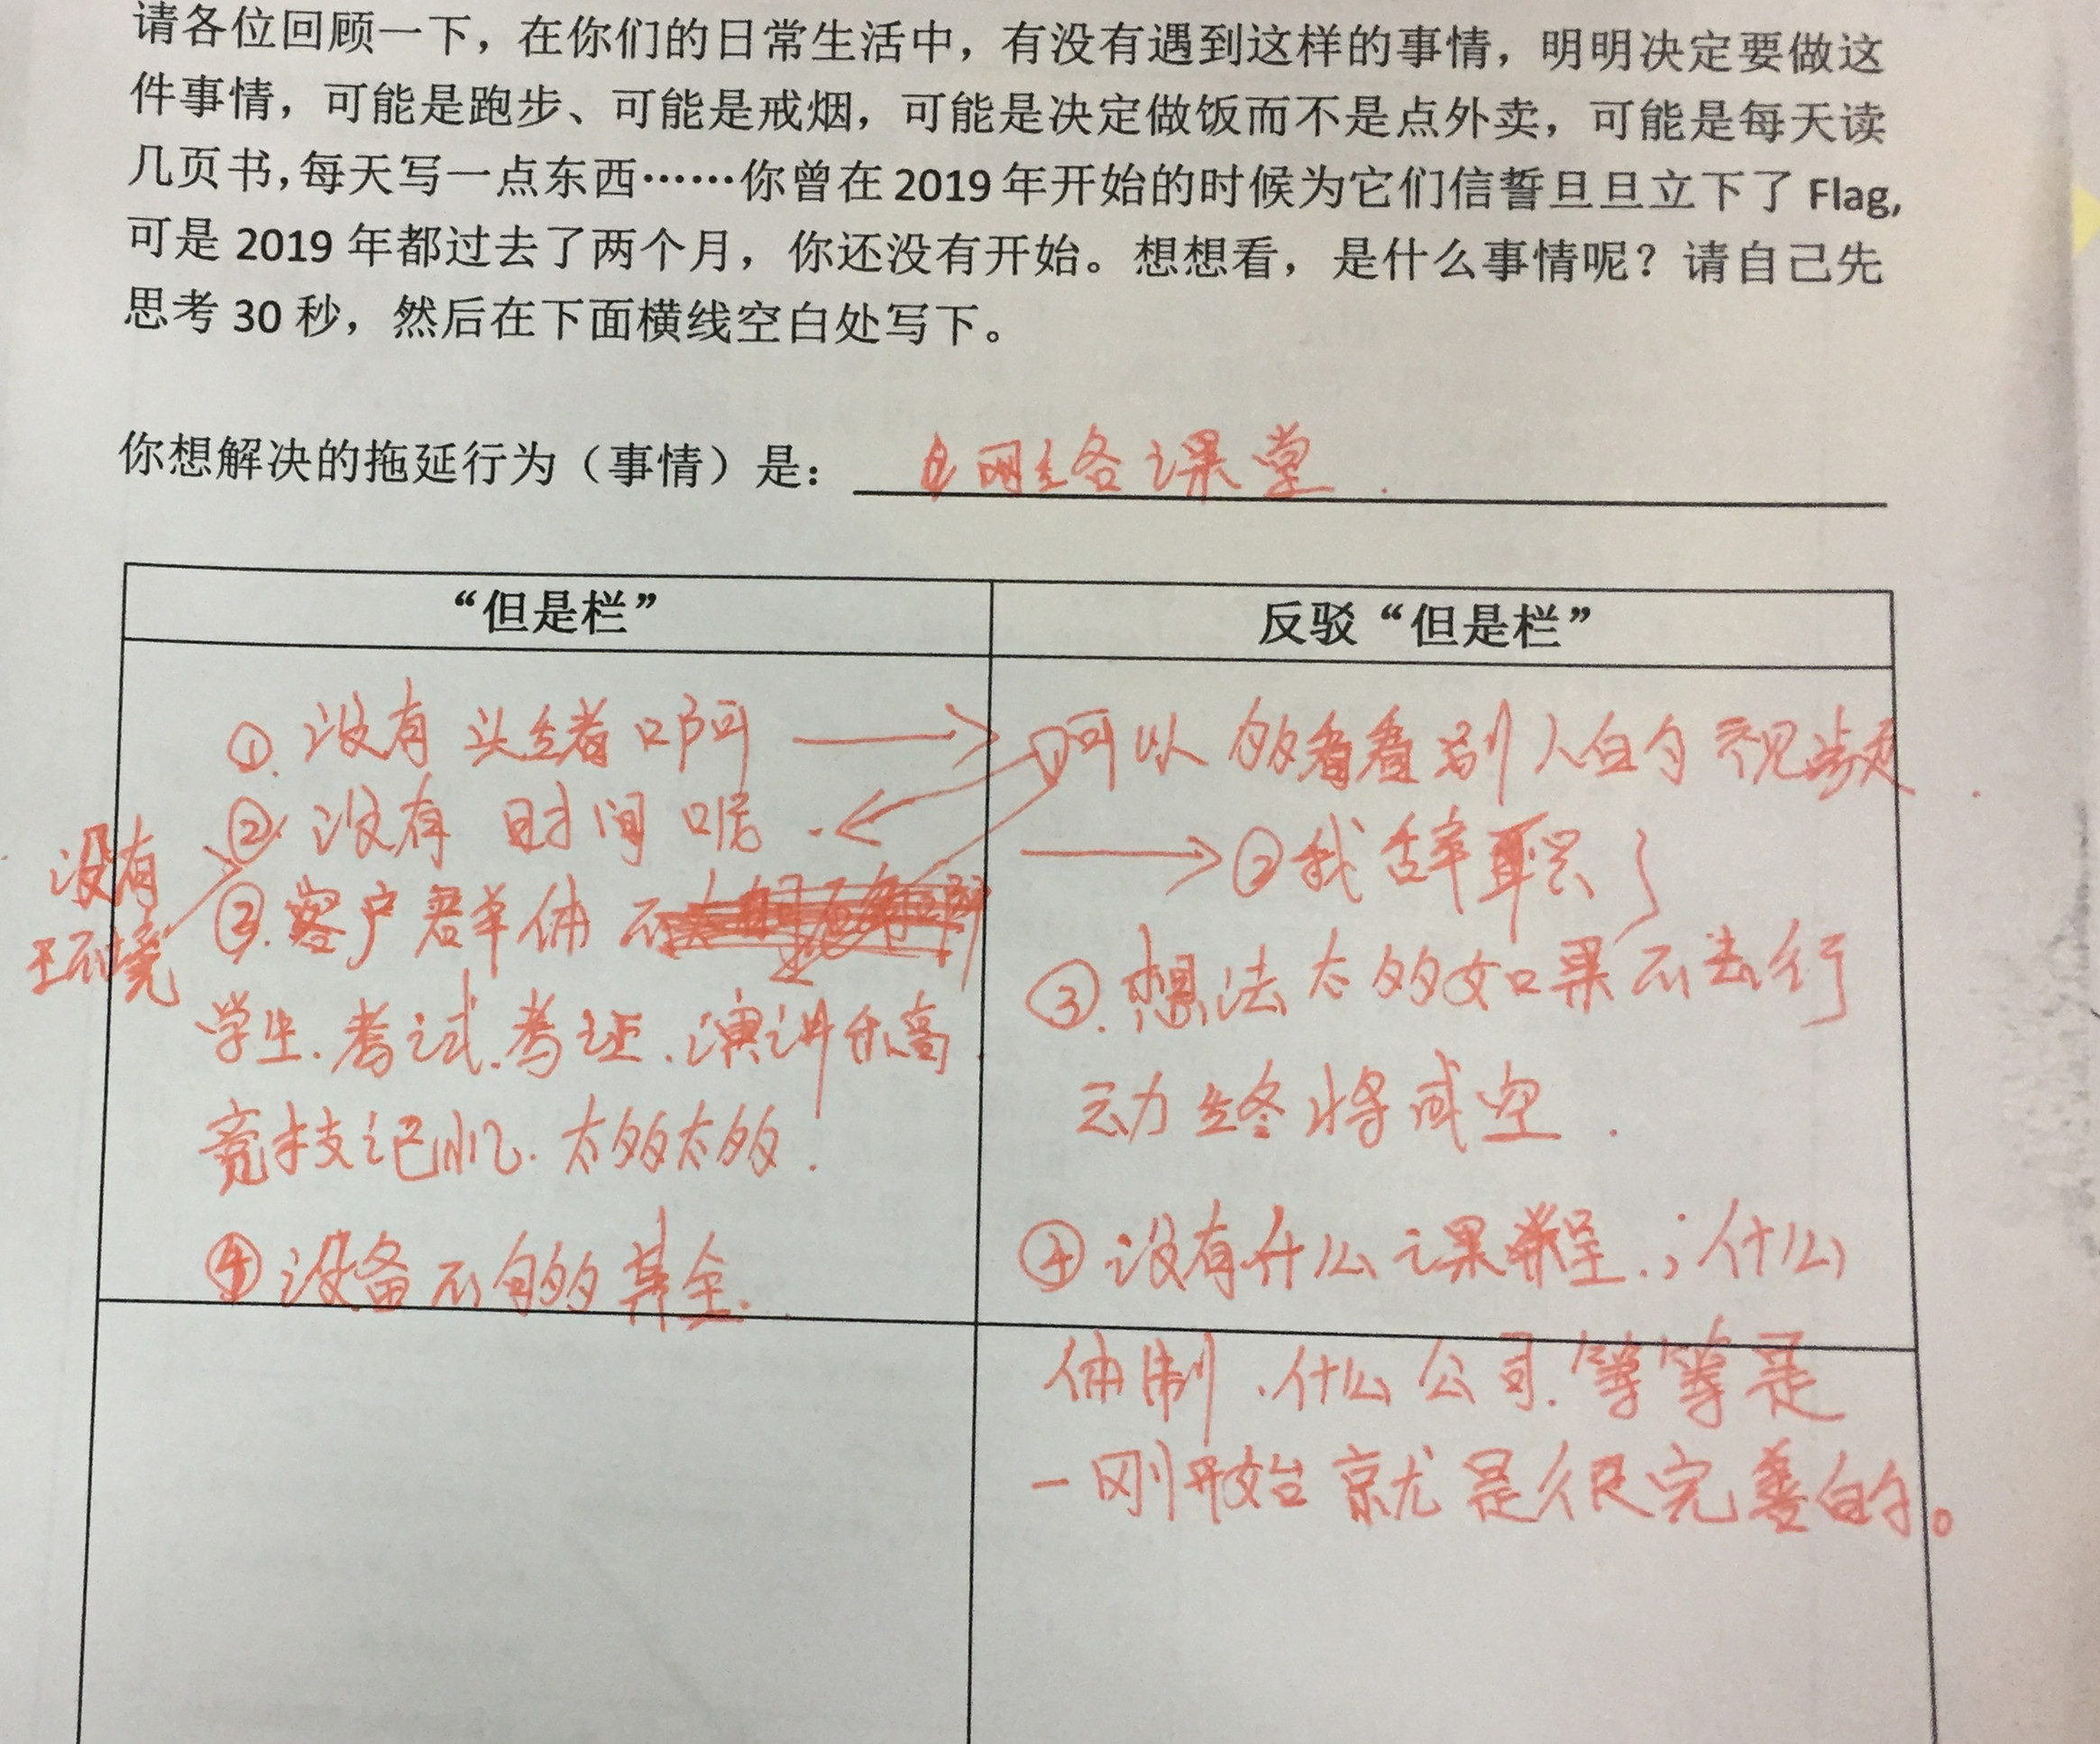 请各位回顾一下，在你们的日常生活中，有没有遇到这样的事情，明明决定要做这
件事情，可能是跑步、可能是戒烟，可能是决定做饭而不是点外卖，可能是每天读
几页书，每天写一点东西……你曾在2019年开始的时候为它们信誓旦旦立下了Flag,
可是2019年都过去了两个月，你还没有开始。想想看，是什么事情呢？请自己先
思考30秒，然后在下面横线空白处写下。
你想解决的拖延行为（事情）是： 网络课堂.
“但是栏” 反驳“但是栏”
①没有头绪啊
②没有时间呢.
没有
环境
③.客户群体不
学生.考试.考证.演讲乐高.
竞技记忆.太多太多.
④设备不够齐全.
①可以多看看别人的视频.
②我辞职了
③.想法太多如果不去行
动终将成空.
④没有什么课程.；什么
体制.什么公司.等等是
一刚开始就是很完善的。